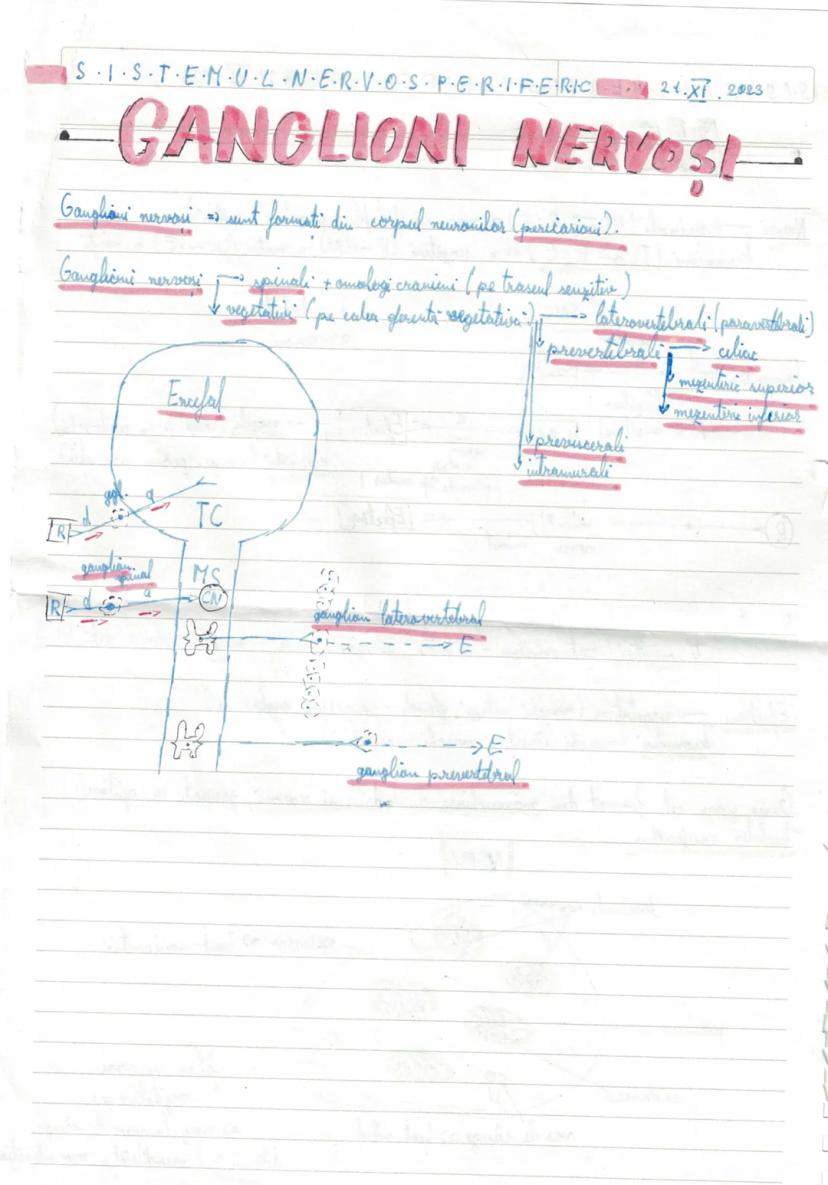 S.I.S.T.E.M.U.L N.E.R.V.O.S P.E.R.I.F.E.R.I.C 21.XI.2023
GANGLIONI NERVOȘI
Ganglioni nervoși => sunt formati din corpul neuronilor (pericarioni).
Ganglioni nervoși → spinali + omologi cranieni (pe traseul senzitiv)
vegetativi (pe calea eferentă vegetativă) → laterovertebrali (paravertebrali)
prevertebrali → celiac
mezenteric superior
mezenteric inferior
previscerali
intramurali
Encefal
ggl.
d a
R
TC
ganglion
spinal
MS
R d a CN
ganglion laterovertebral
E
E
ganglion prevertebral